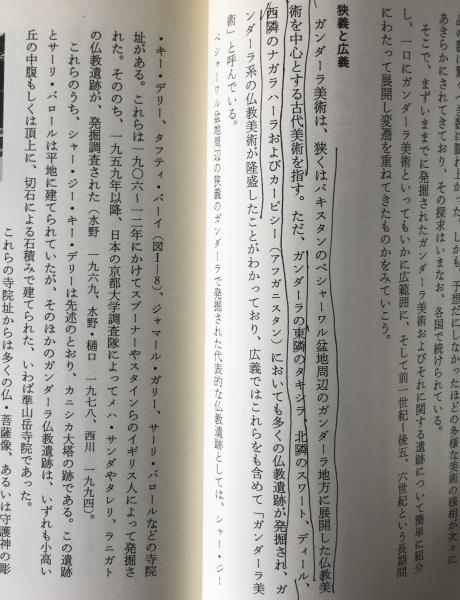 品の数に驚いて数に膨れ上がった。しかも、予想だにしなかったほどの多様な美術の様相が次々に
あきらかにされてきており、その探求はいまなお、各国で続けられている。
そこで、まずいままでに発掘されたガンダーラ美術およびそれに関する遺跡について簡単に紹介
し、一口にガンダーラ美術といってもいかに広範囲に、そして前一世紀〜後五、六世紀という長期間
にわたって展開し変遷を重ねてきたものかをみていこう。
狭義と広義
ガンダーラ美術は、狭くはパキスタンのペシャーワル盆地周辺のガンダーラ地方に展開した仏教美
術を中心とする古代美術を指す。ただ、ガンダーラの東隣のタキシラ、北隣のスワート、ディール、
西隣のナガラハーラおよびカーピシー（アフガニスタン）においても多くの仏教遺跡が発掘され、ガ
ンダーラ系の仏教美術が隆盛したことがわかっており、広義ではこれらをも含めて「ガンダーラ美
術」と呼んでいる。
ペシャーワル盆地周辺の狭義のガンダーラで発掘された代表的な仏教遺跡としては、シャー・ジー
・キー・デリー、タフティ・バーイ（図I—8）、ジャマール・ガリー、サーリ・バロールなどの寺院
址がある。これらは一九〇六〜一二年にかけてスプーナーやスタインらのイギリス人によって発掘さ
れた。そののち、一九五九年以降、日本の京都大学調査隊によってメハ・サンダやタレリ、ラニガト
の仏教遺跡が、発掘調査された（水野 一九六九、水野・樋口 一九七八、西川 一九九四）。
これらのうち、シャー・ジー・キー・デリーは先述のとおり、カニシカ大塔の跡である。この遺跡
とサーリ・バロールは平地に建てられていたが、そのほかのガンダーラ仏教遺跡は、いずれも小高い
丘の中腹もしくは頂上に、切石による石積みで建てられた、いわば準山岳寺院であった。
これらの寺院址からは多くの仏・菩薩像、あるいは守護神の彫